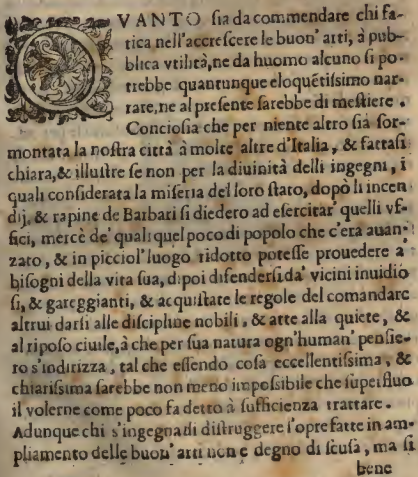 QVANTO ſia da commendare chi fa-
tica nell'accreſcere le buon' arti, à pub-
blica vtilità, ne da huomo alcuno ſi po-
trebbe quantunque eloquẽtiſsimo nar-
rare, ne al preſente ſarebbe di meſtiere.
Concioſia che per niente altro ſia ſor-
montata la noſtra città à molte altre d'Italia, & fattaſi
chiara, & illuſtre ſe non per la diuinità delli ingegni, i
quali conſiderata la miſeria del loro ſtato, dopò li incen
dij, & rapine de Barbari ſi diedero ad eſercitar' quelli vf-
fici, mercè de' quali quel poco di popolo che c'era auan-
zato, & in picciol' luogo ridotto poteſſe prouedere a'
biſogni della vita ſua, di poi difenderſi da' vicini inuidio
ſi, & gareggianti, & acquiſtate le regole del comandare
altrui darſi alle diſcipline nobili, & atte alla quiete, &
al ripoſo ciuile, à che per ſua natura ogn'human' penſie-
ro s'indirizza, tal che eſſendo coſa eccellentiſsima, &
chiariſsima ſarebbe non meno impoſsibile che ſuperfluo
il volerne come poco fa detto à ſufficienza trattare.
Adunque chi s'ingegna di diſtruggere l'opre fatte in am-
pliamento delle buon' arti non e degno di ſcuſa, ma ſi
bene